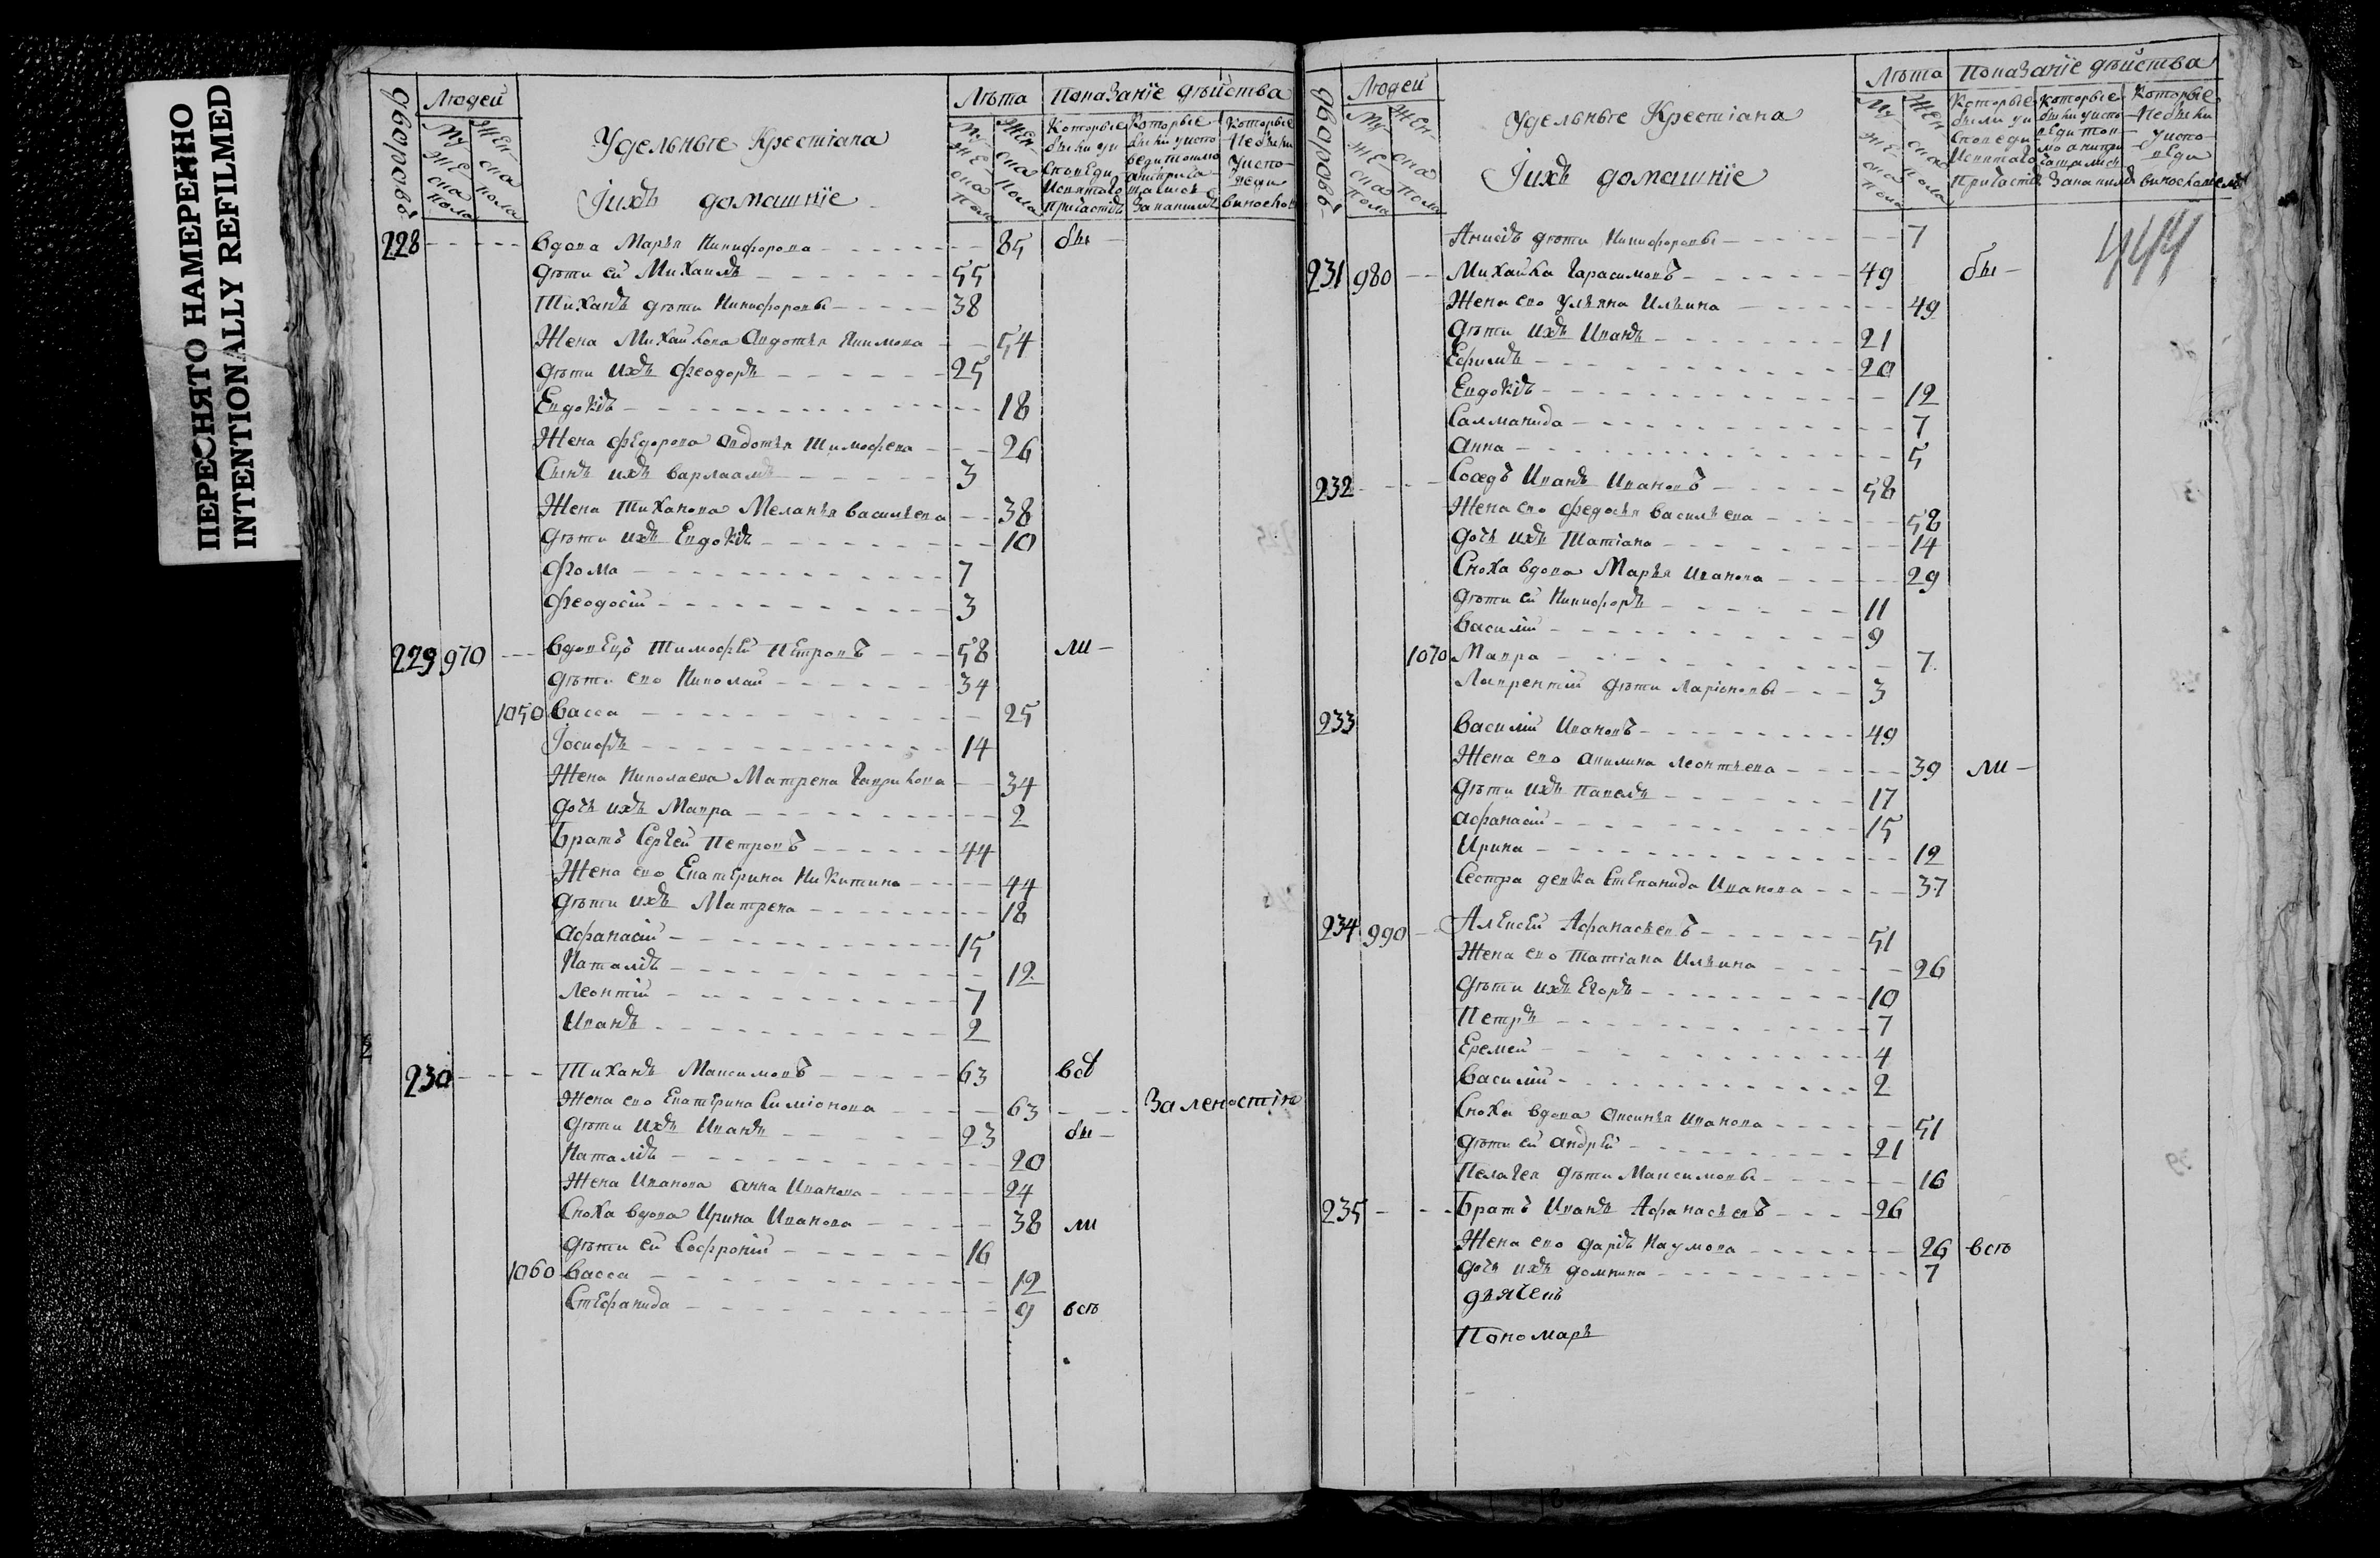 ПЕРЕСНЯТО НАМЕРЕННО
INTENTIONALLY REFILMED
дворовъ
Людей
Му-
же
ска
пола
Жен-
ска
пола
Удельныѣ Крестіана
Іихъ домашніе
Лѣта
Показаніе дѣйства
Которые
были уи
споведи
Исвятаго
Причастїѧ
Которые
Которые
Небыли
228 Вдова Марья Никифорова 85 бы
Дѣти ей Михаилъ 55
Тиханъ дѣти Никифоровы 38
Жена Михайлова Авдотья Якимова 54
Дѣти ихъ Феодоръ 25
Евдокіѧ 18
Жена Федорова Авдотья Тимофева 26
Сынъ ихъ Варлаамъ 3
Жена Тиханова Меланья Васильева 38
Дѣти ихъ Евдокіѧ 10
Фома 7
Феодосій 3
229 970 Вдовецъ Тимофей Петровъ 58 ли
Дѣти ево Николай 34
1050 Васса 25
Іосифъ 14
Жена Николаева Матрена Гаврилова 34
Дочь ихъ Мавра 2
Братъ Сергей Петровъ 44
Жена ево Екатерина Никитина 44
Дѣти ихъ Матрена 18
Афанасій 15
Наталіѧ 12
Леонтій 7
Иванъ 2
230 Тиханъ Максимовъ 63 всѣ
Жена ево Екатерина Симіонова 63 За леностію
Дѣти ихъ Иванъ 23 бы
Наталіѧ 20
Жена Иванова Анна Иванова 24
Сноха вдова Ирина Иванова 38 ли
Дѣти ей Софроній 16
1060 Васса 12
Стефанида 9 всѣ
дворовъ
Людей
Му-
же
ска
пола
Жен-
ска
пола
Удельныѣ Крестіана
Іихъ домашніе
Лѣта
Показаніе дѣйства
Которые
были уи
споведи
Которые
Которые
Небыли
444
Анисіѧ дѣти Никифоровы 7
231 980 Михайла Гарасимовъ 49 бы
Жена ево Ульяна Ильина 49
Дѣти ихъ Иванъ 21
Ефимъ 20
Евдокіѧ 12
Салманида 7
Анна 5
232 Соседъ Иванъ Ивановъ 58
Жена ево Федосья Васильева 58
Дочь ихъ Татіана 14
Сноха вдова Марья Иванова 29
Дѣти ей Никифоръ 11
Василій 9
1070 Мавра 7
Лаврентій дѣти Ларіоновы 3
233 Василій Ивановъ 49
Жена ево Акилина Леонтьева 39 ли
Дѣти ихъ Павелъ 17
Афанасій 15
Ирина 12
Сестра девка Степанида Иванова 37
234 990 Алексей Афанасьевъ 51
Жена ево Татіана Ильина 26
Дѣти ихъ Егоръ 10
Петръ 7
Еремей 4
Василій 2
Сноха вдова Аксинья Иванова 51
Дѣти ей Андрей 21
Пелагея дѣти Максимовы 16
235 Братъ Иванъ Афанасьевъ 26
Жена ево Даріѧ Наумова 26 всѣ
Дочь ихъ Домнина 7
Дьячекъ
Пономарь